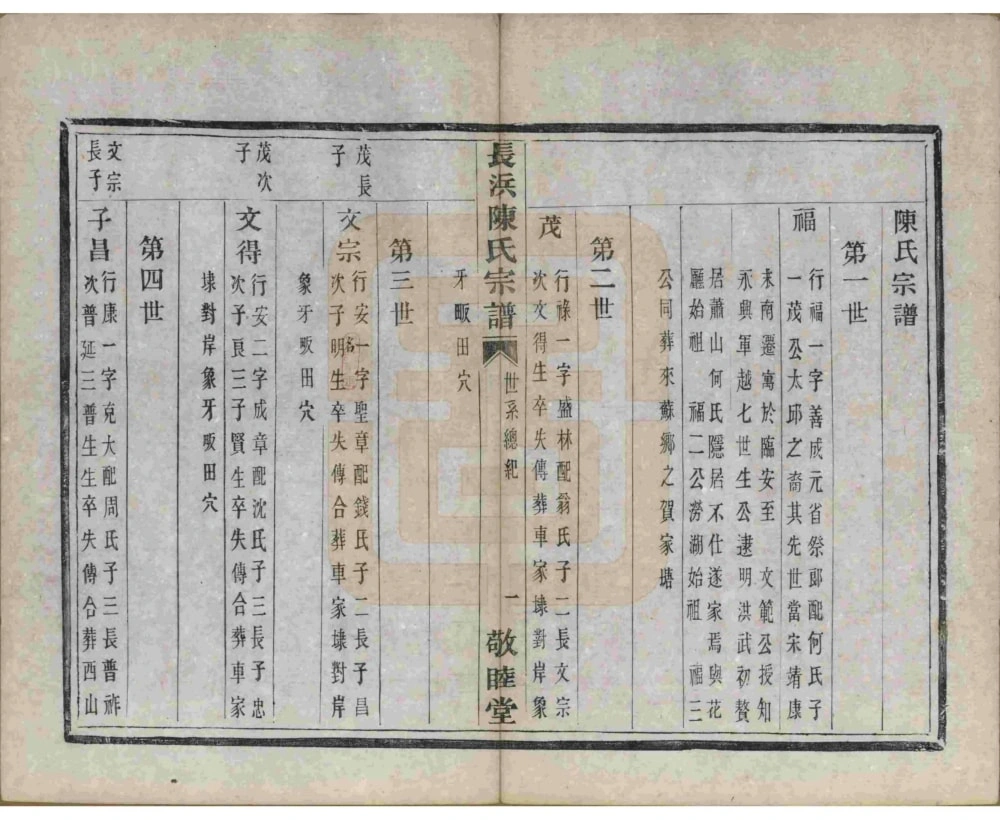 陳氏宗譜
第一世
福
行福一字善成元省祭郎配何氏子
一茂公太邱之裔其先世當宋靖康
末南遷寓於臨安至　文範公授知
永興軍越七世生公逮明洪武初贅
居蕭山何氏隱居不仕遂家焉與花
廳始祖　福二公澇湖始祖　福三
公同葬來蘇鄉之賀家塘
第二世
茂
行祿一字盛林配翁氏子二長文宗
次文得生卒失傳葬車家埭對岸象
牙畈田穴
長浜陳氏宗譜
世系總紀
一
敬睦堂
第三世
茂長
子
文宗
行安一字聖章配錢氏子二長子昌
次子明生卒失傳合葬車家埭對岸
象牙畈田穴
茂次
子
文得
行安二字成章配沈氏子三長子忠
次子良三子賢生卒失傳合葬車家
埭對岸象牙畈田穴
第四世
文宗
長子
子昌
行康一字克大配周氏子三長普祚
次普延三普生生卒失傳合葬西山